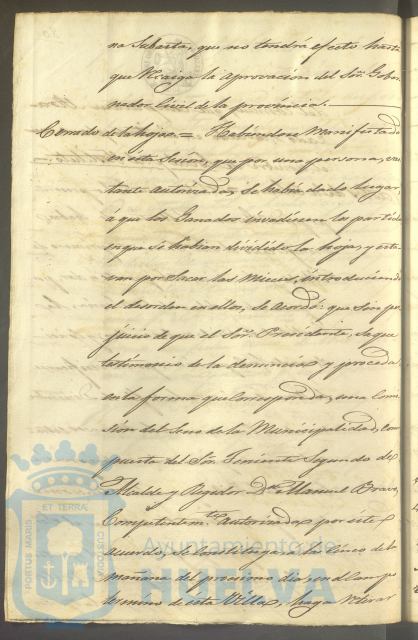 na Subasta, que no tendrá efecto hasta
que recaiga la aprovacion del Sor. Gober
nador Civil de la provincia.
Comido de la hoja = Habiendose manifestado
en esta Sesion, que por una persona, vas
tante autorizada, se había dado lugar,
á que los Ganados invadiesen los partidos
en que se habian dividido la hoja, y esta
van por sacar las Mieses, introduciendo
el desorden en ellos, se acordó: que sin per
juicio de que el Sor. Presidente, saque
testimonio de la denuncia y proceda,
en la forma que corresponda, una Comi
sion del seno de la Municipalidad, com
puesta del Sor. Teniente Segundo de
Alcalde y Regidor Dn. Manuel Bravo,
Competentemte. autorizada por este
acuerdo, se constituya a las cinco de la
mañana del procsimo dia, en el campo
termino de esta Villa, haga retirar
PORTUS MARIS
ET TERRÆ
CUSTODIA
Ayuntamiento de
HUELVA